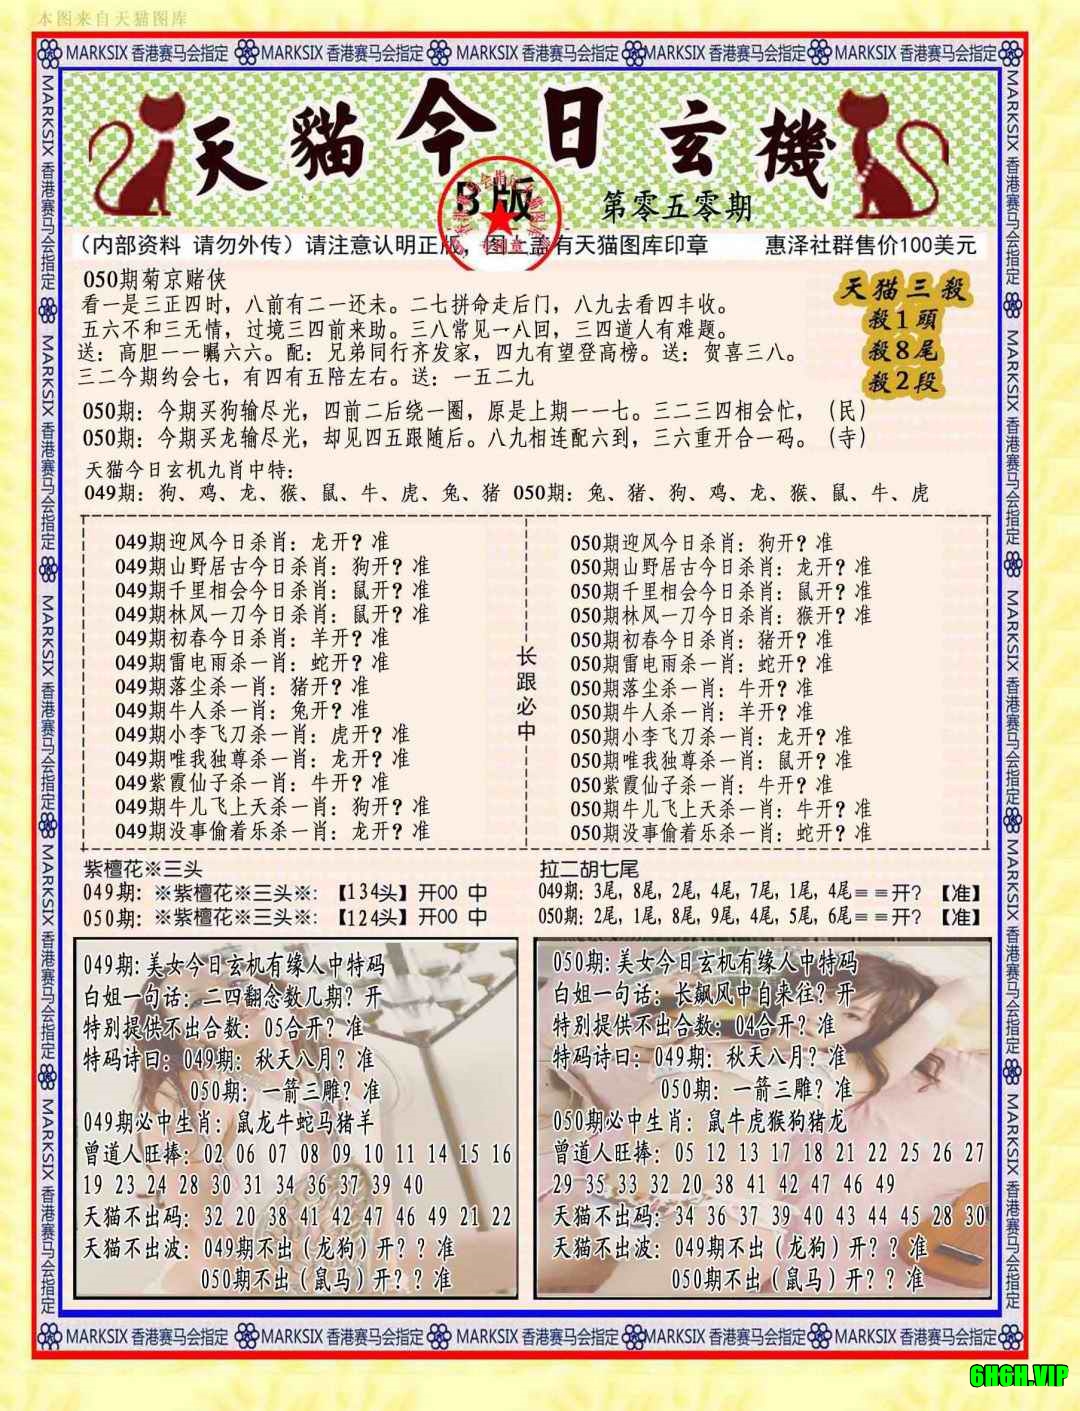 本图来自天猫图库
MARKSIX 香港赛马会指定 MARKSIX 香港赛马会指定 MARKSIX 香港赛马会指定 MARKSIX 香港赛马会指定 MARKSIX 香港赛马会指定
天貓今日玄機
B版
第零五零期
(内部资料 请勿外传) 请注意认明正版, 图上盖有天猫图库印章 惠泽社群售价100美元
050期菊京赌侠
看一是三正四时, 八前有二一还未。二七拼命走后门, 八九去看四丰收。
五六不和三无情, 过境三四前来助。三八常见一八回, 三四道人有难题。
送: 高胆一一嘱六六。配: 兄弟同行齐发家, 四九有望登高榜。送: 贺喜三八。
三二今期约会七, 有四有五陪左右。送: 一五二九
天猫三殺
殺1頭
殺8尾
殺2段
050期: 今期买狗输尽光, 四前二后绕一圈, 原是上期一一七。三二三四相会忙, (民)
050期: 今期买龙输尽光, 却见四五跟随后。八九相连配六到, 三六重开合一码。(寺)
天猫今日玄机九肖中特:
049期: 狗、鸡、龙、猴、鼠、牛、虎、兔、猪 050期: 兔、猪、狗、鸡、龙、猴、鼠、牛、虎
049期迎风今日杀肖: 龙开? 准
049期山野居古今日杀肖: 狗开? 准
049期千里相会今日杀肖: 鼠开? 准
049期林风一刀今日杀肖: 鼠开? 准
049期初春今日杀肖: 羊开? 准
049期雷电雨杀一肖: 蛇开? 准
049期落尘杀一肖: 猪开? 准
049期牛人杀一肖: 兔开? 准
049期小李飞刀杀一肖: 虎开? 准
049期唯我独尊杀一肖: 龙开? 准
049紫霞仙子杀一肖: 牛开? 准
049期牛儿飞上天杀一肖: 狗开? 准
049期没事偷着乐杀一肖: 龙开? 准
长跟必中
050期迎风今日杀肖: 狗开? 准
050期山野居古今日杀肖: 龙开? 准
050期千里相会今日杀肖: 鼠开? 准
050期林风一刀今日杀肖: 猴开? 准
050期初春今日杀肖: 猪开? 准
050期雷电雨杀一肖: 蛇开? 准
050期落尘杀一肖: 牛开? 准
050期牛人杀一肖: 羊开? 准
050期小李飞刀杀一肖: 龙开? 准
050期唯我独尊杀一肖: 鼠开? 准
050紫霞仙子杀一肖: 牛开? 准
050期牛儿飞上天杀一肖: 牛开? 准
050期没事偷着乐杀一肖: 蛇开? 准
紫檀花※三头
049期: ※紫檀花※三头※: 【134头】开00 中
050期: ※紫檀花※三头※: 【124头】开00 中
拉二胡七尾
049期: 3尾, 8尾, 2尾, 4尾, 7尾, 1尾, 4尾==开? 【准】
050期: 2尾, 1尾, 8尾, 9尾, 4尾, 5尾, 6尾==开? 【准】
049期: 美女今日玄机有缘人中特码
白姐一句话: 二四翻念数几期? 开
特别提供不出合数: 05合开? 准
特码诗曰: 049期: 秋天八月? 准
050期: 一箭三雕? 准
049期必中生肖: 鼠龙牛蛇马猪羊
曾道人旺捧: 02 06 07 08 09 10 11 14 15 16
19 23 24 28 30 31 34 36 37 39 40
天猫不出码: 32 20 38 41 42 47 46 49 21 22
天猫不出波: 049期不出(龙狗)开? ? 准
050期不出(鼠马)开? ? 准
050期: 美女今日玄机有缘人中特码
白姐一句话: 长飙风中自来往? 开
特别提供不出合数: 04合开? 准
特码诗曰: 049期: 秋天八月? 准
050期: 一箭三雕? 准
050期必中生肖: 鼠牛虎猴狗猪龙
曾道人旺捧: 05 12 13 17 18 21 22 25 26 27
29 35 33 32 20 38 41 42 47 46 49
天猫不出码: 34 36 37 39 40 43 44 45 28 30
天猫不出波: 049期不出(龙狗)开? ? 准
050期不出(鼠马)开? ? 准
MARKSIX 香港赛马会指定 MARKSIX 香港赛马会指定 MARKSIX 香港赛马会指定 MARKSIX 香港赛马会指定 MARKSIX 香港赛马会指定
MARKSIX 香港赛马会指定 MARKSIX 香港赛马会指定 MARKSIX 香港赛马会指定 MARKSIX 香港赛马会指定 MARKSIX 香港赛马会指定
MARKSIX 香港赛马会指定 MARKSIX 香港赛马会指定 MARKSIX 香港赛马会指定 MARKSIX 香港赛马会指定 MARKSIX 香港赛马会指定
6H6H.VIP